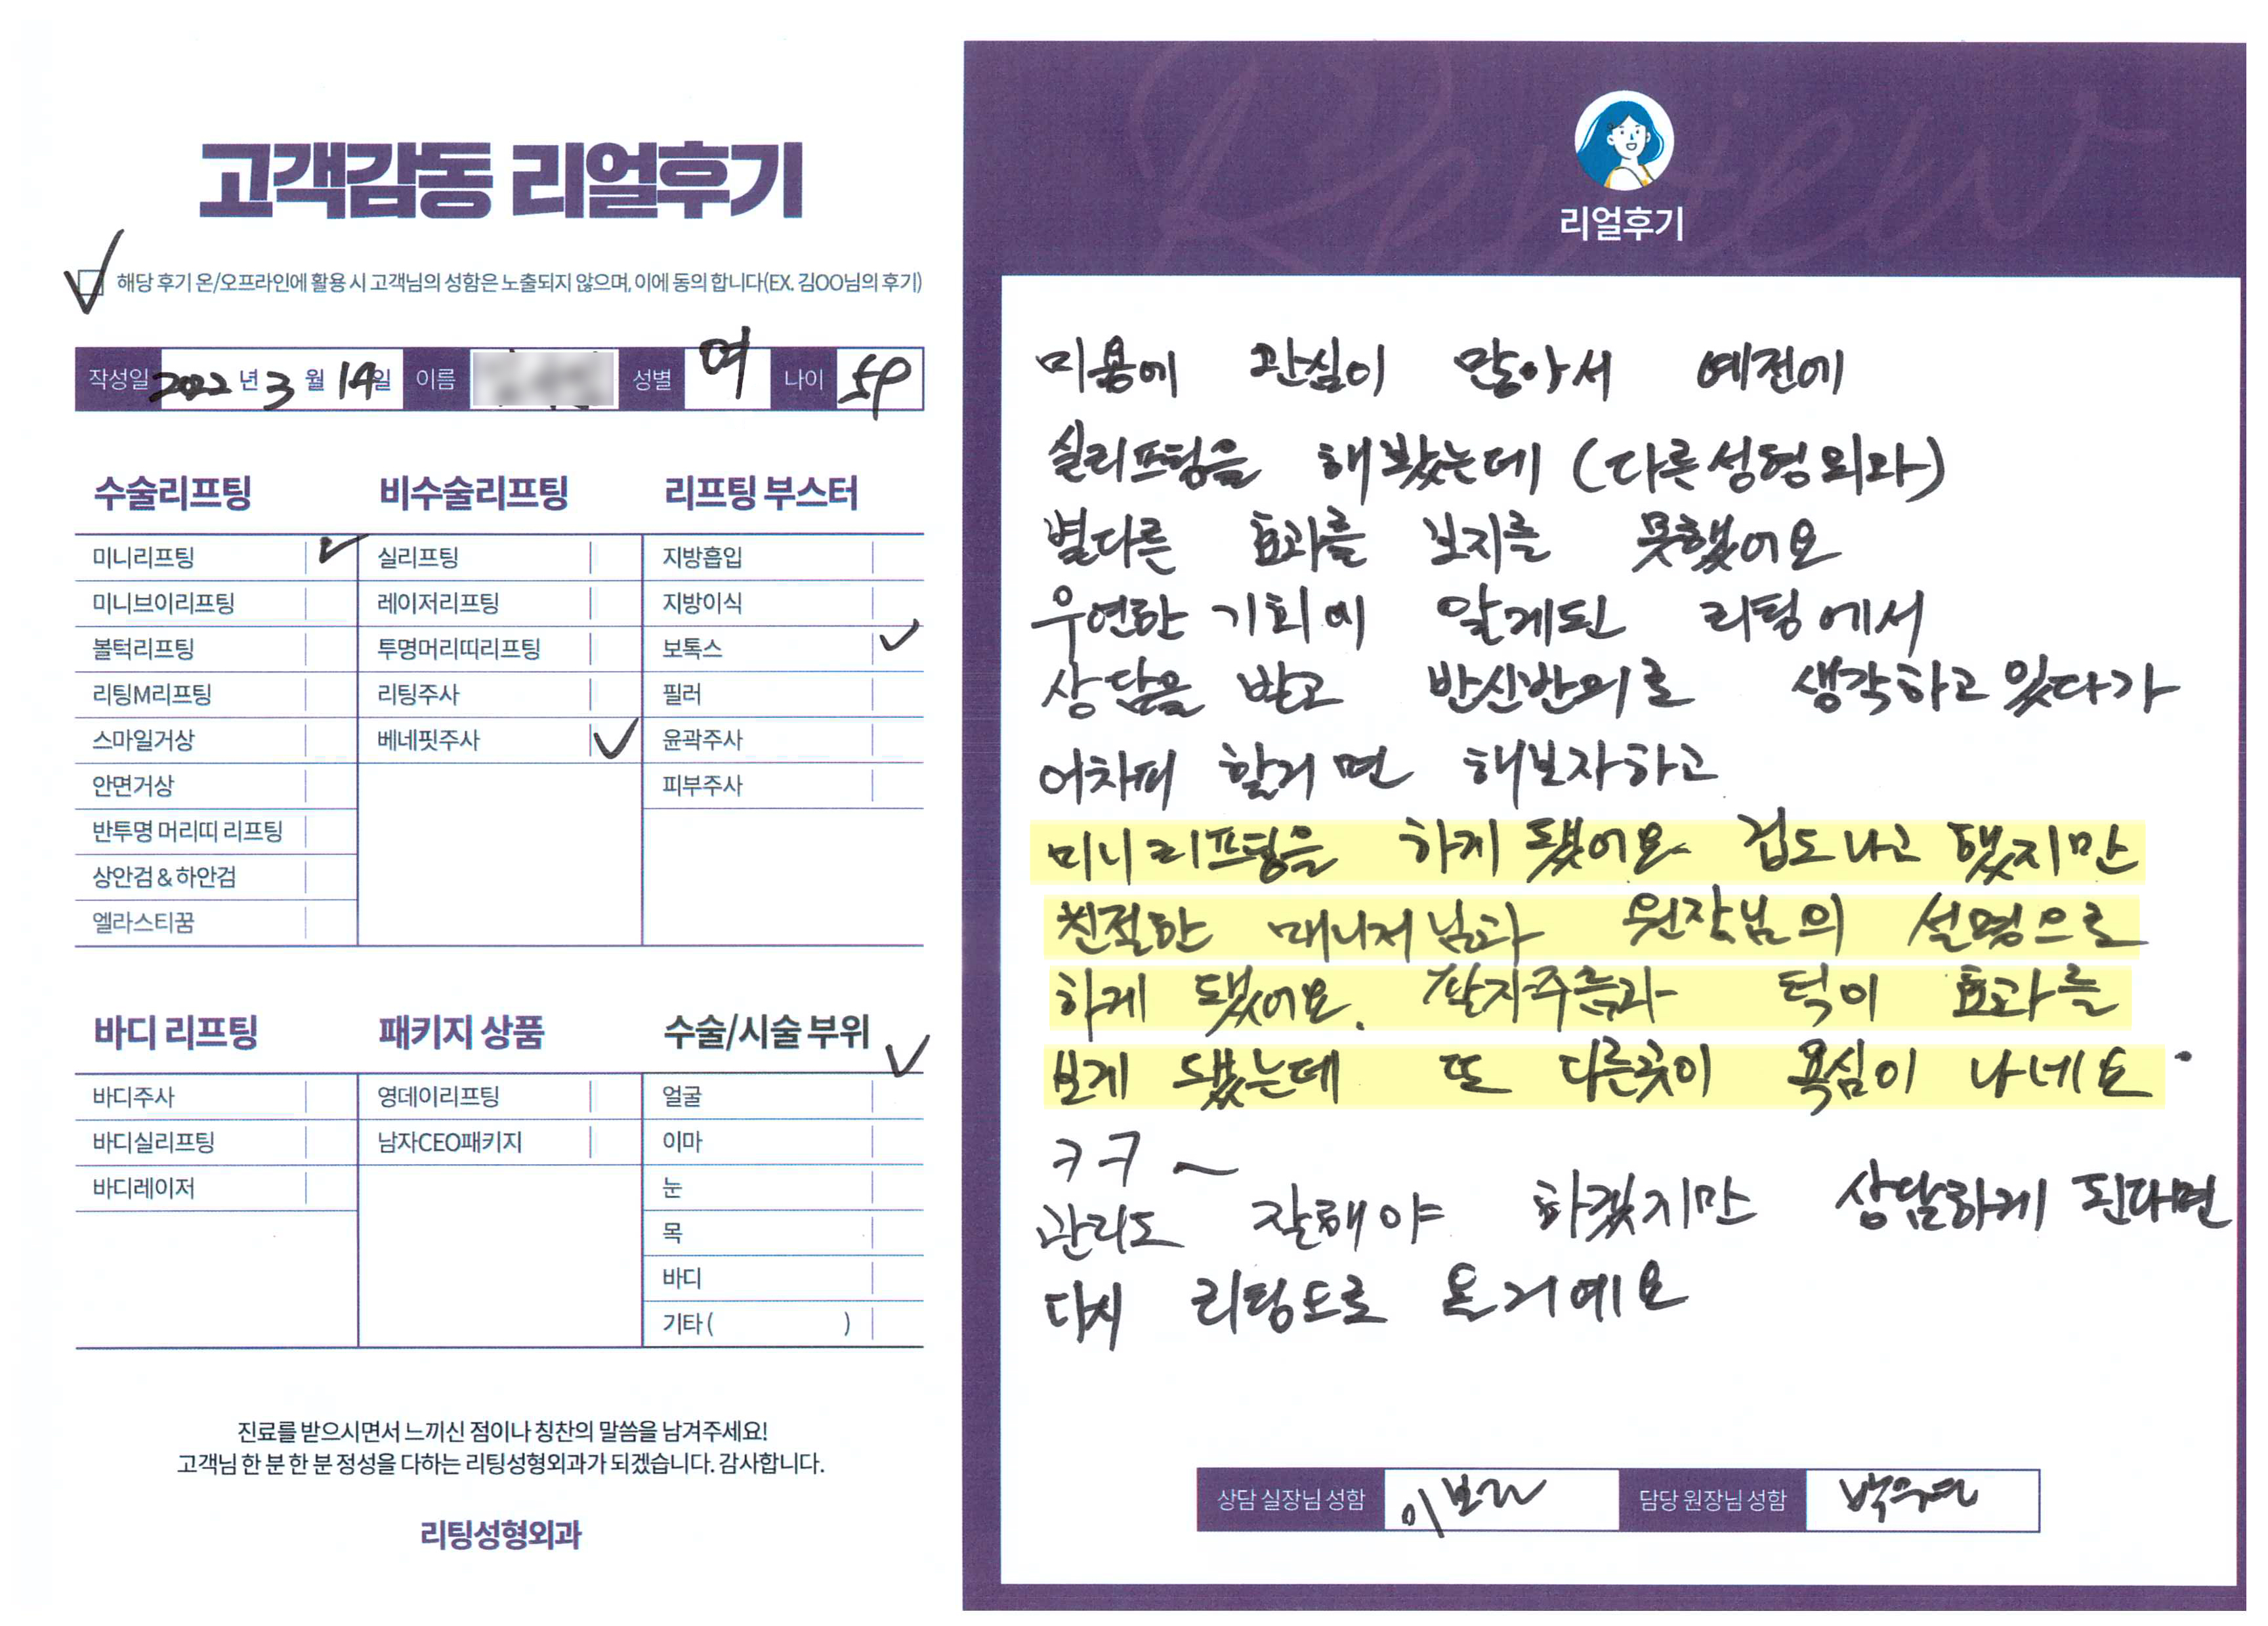 고객감동 리얼후기
해당 후기 온/오프라인에 활용 시 고객님의 성함은 노출되지 않으며, 이에 동의 합니다(EX. 김OO님의 후기)
작성일 2022 년 3 월 14일 이름 성별 여 나이 59
수술리프팅 비수술리프팅 리프팅 부스터
미니리프팅 실리프팅 지방흡입
미니브이리프팅 레이저리프팅 지방이식
볼턱리프팅 투명머리띠리프팅 보톡스
리팅M리프팅 리팅주사 필러
스마일거상 베네핏주사 윤곽주사
안면거상 피부주사
반투명 머리띠 리프팅
상안검 & 하안검
엘라스티꿈
바디 리프팅 패키지 상품 수술/시술 부위
바디주사 영데이리프팅 얼굴
바디실리프팅 남자CEO패키지 이마
바디레이저 눈
목
바디
기타 ( )
진료를 받으시면서 느끼신 점이나 칭찬의 말씀을 남겨주세요!
고객님 한 분 한 분 정성을 다하는 리팅성형외과가 되겠습니다. 감사합니다.
리팅성형외과
Review
리얼후기
미용에 관심이 많아서 예전에
실리프팅을 해봤는데 (다른성형외과)
별다른 효과를 보지를 못했어요
우연한 기회에 알게된 리팅에서
상담을 받고 반신반의로 생각하고 있다가
어차피 할거면 해보자하고
미니리프팅을 하게 됐어요 겁도 나고 했지만
친절한 매니저님과 원장님의 설명으로
하게 됐어요. 팔자주름과 턱이 효과를
보게 됐는데 또 다른곳이 욕심이 나네요.
ㅋㅋ ~
관리도 잘해야 하겠지만 상담하게 된다면
다시 리팅으로 올거예요
상담 실장님 성함 이보라 담당 원장님 성함